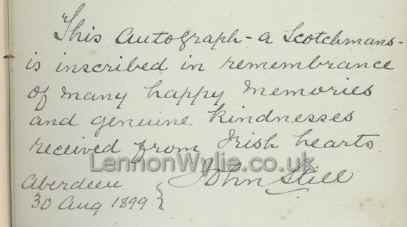 This Autograph - a Scotchmans -
is inscribed in remembrance
of many happy memories
and genuine kindnesses
received from Irish hearts.
LennonWylie.co.uk
Aberdeen { John Still
30 Aug 1899 {